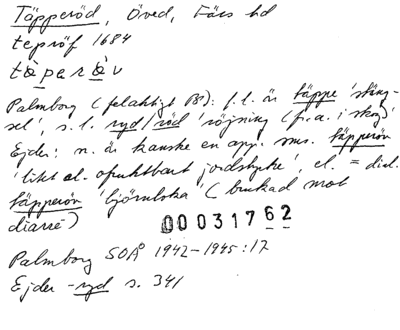 Täpperöd, Öved, Färs hd
tepröf 1684
täperåv
Palmborg (felaktigt PB): f.l. är täppe 'stäng-
sel', s.l. ryd/röd 'röjning (fr.a. i skog)'
Ejder: n. är kanske en app. sms. täpperöv
'litet el. ofruktbart jordstycke', el. = dial.
täpperöv 'björnloka' (brukad mot
diarré)
00031762
Palmborg SOÅ 1942-1945:17
Ejder -ryd s. 341